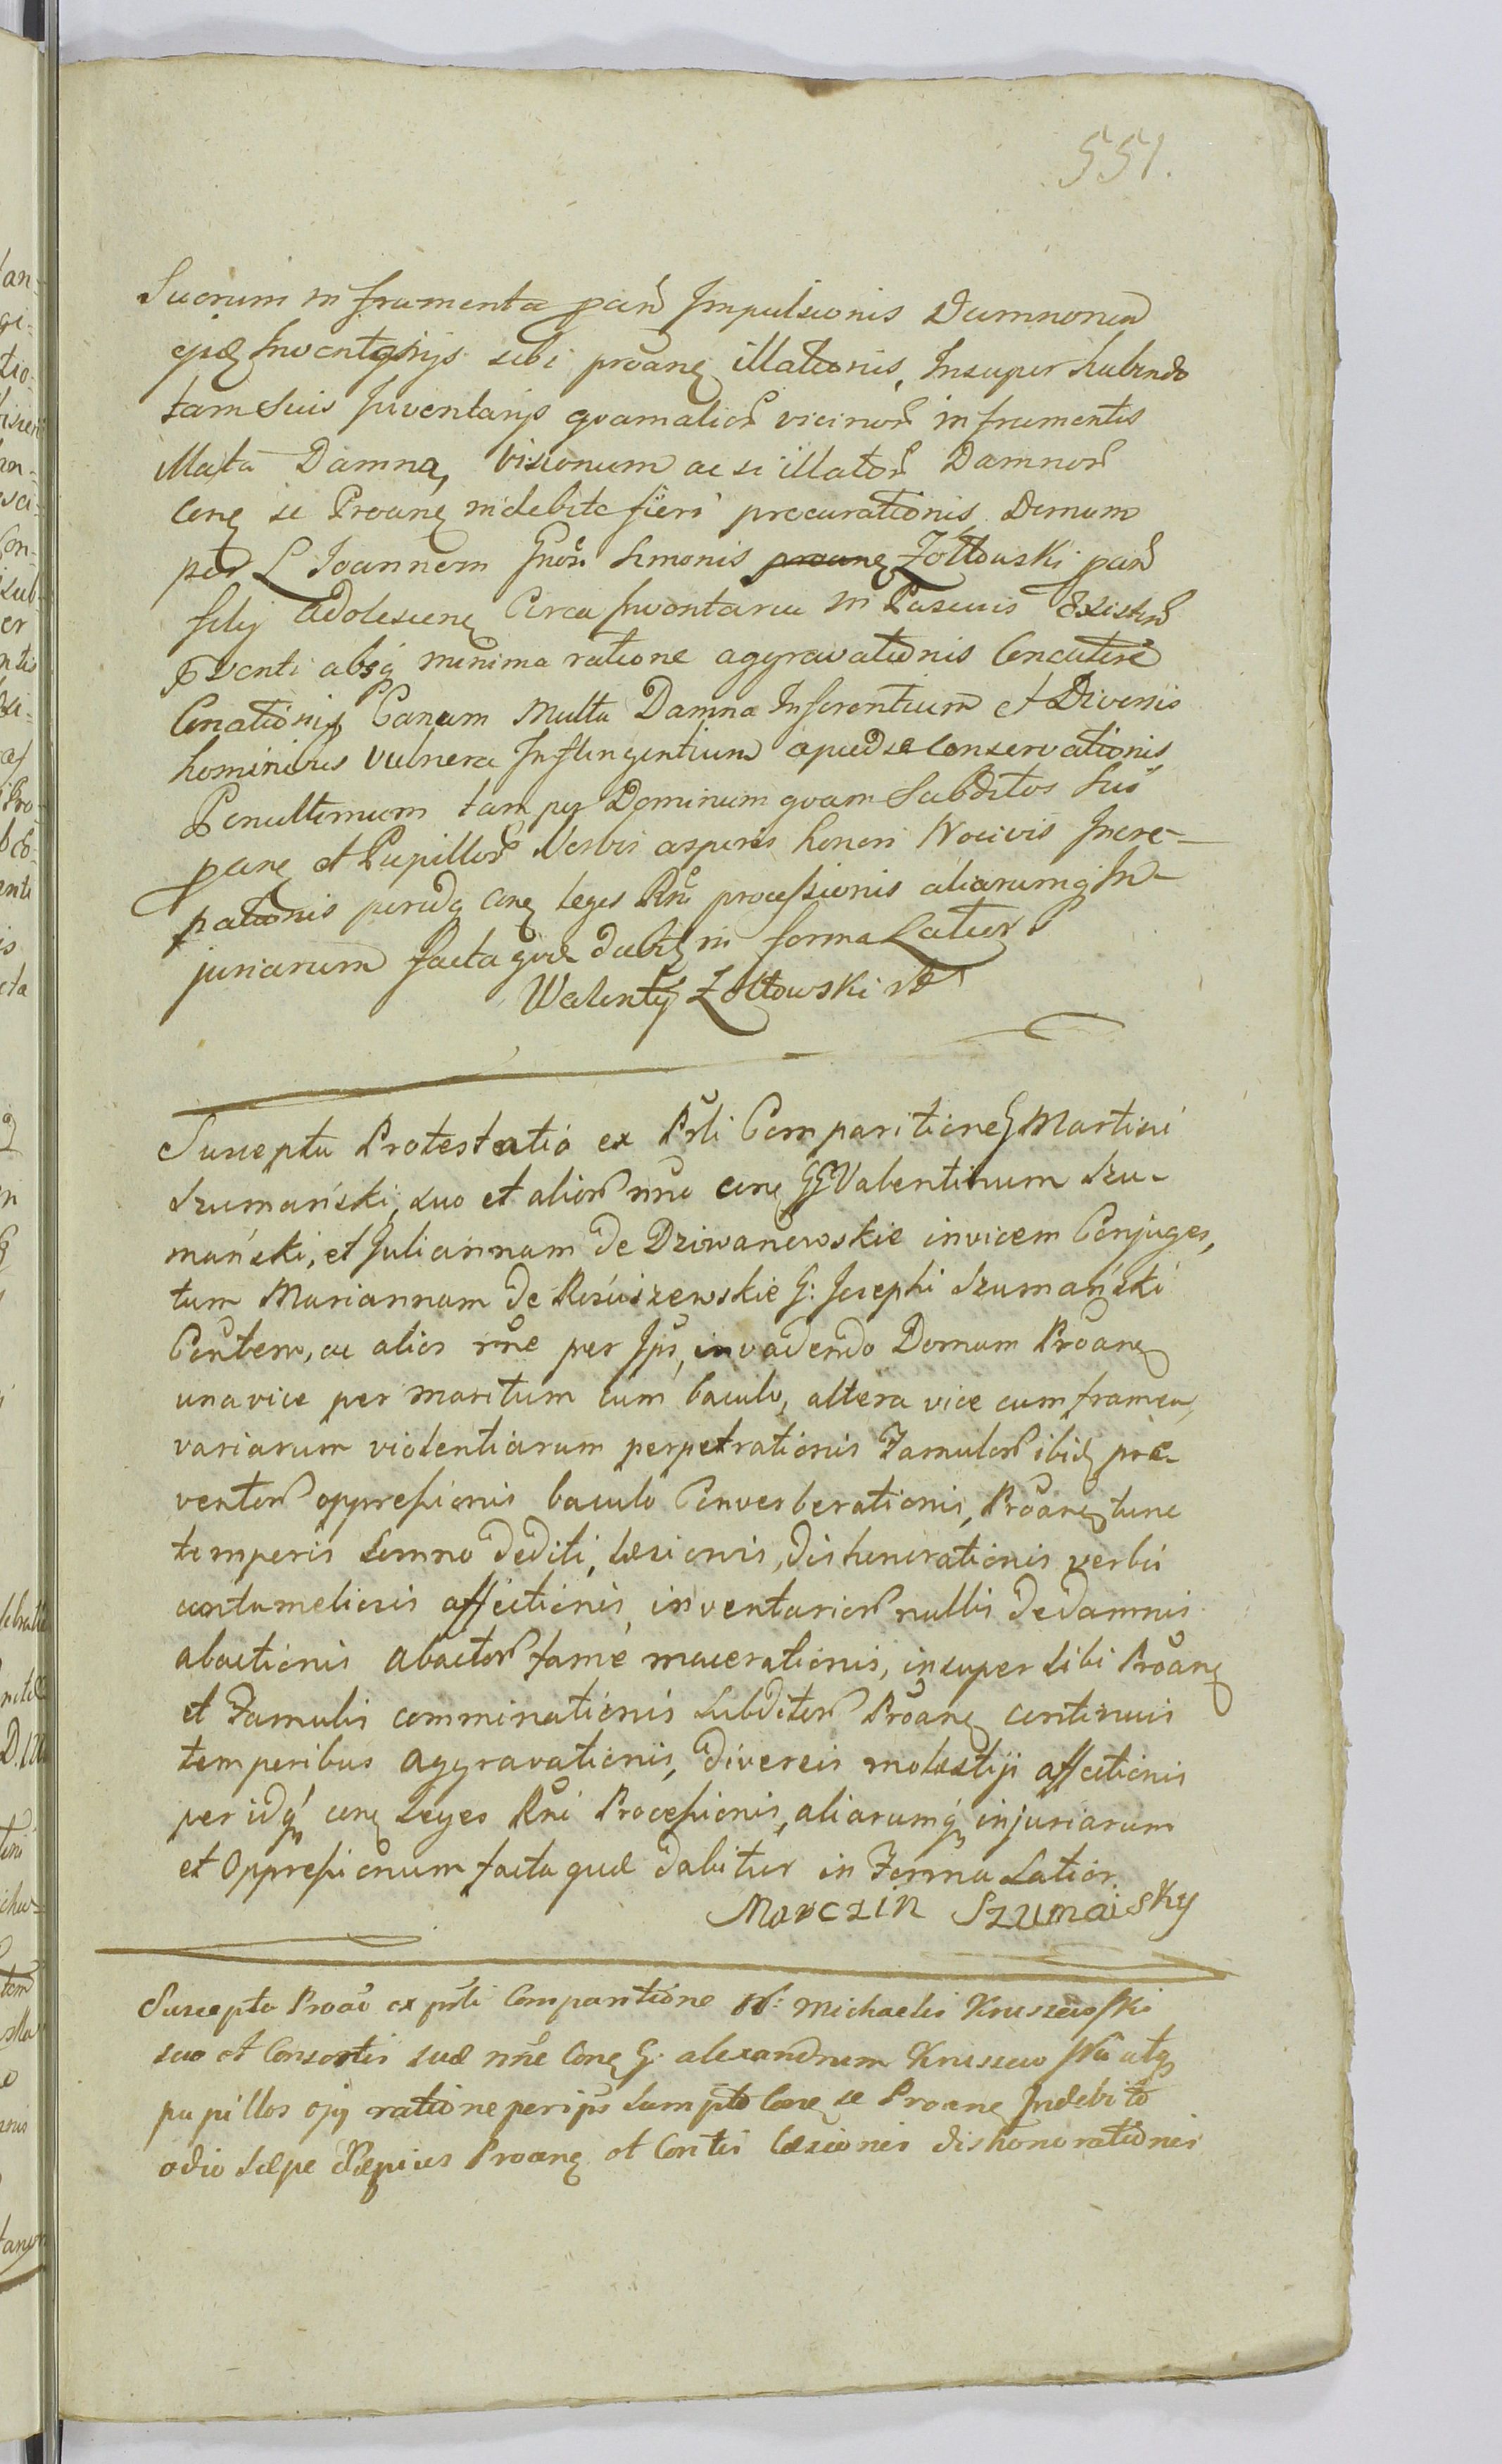 551.
Suorum in frumenta pan̄ Impulsionis Damnorum
ejqȝ Inventarijs sibi proanȝ illationis, Insuper habendo
tam suis Inventarijs qvam alior̄ vicinor̄ in frumentis
illata Damna, visionum ac si illator̄ Damnor̄
conȝ se Proanȝ indebite fieri procurationis, Demum
per L Joannem Gnōsi Simonis Zołtowski pan̄
filij adolescenȝ Circa Inventaria in Pascuis Existen̄
absqȝ minima ratione aggravationis Concutere
Conationis, Canum Multa Damna Inferentium et Diversis
hominibus vulnera Infligentium apud se conservationis,
Penultimum tam per Dominum qvam Subditos suos
panȝ et Pupillor̄ Verbis asperis honori Nocivis Incre-
pationis peridqȝ conȝ leges Rn̄i processionis aliarumqȝ In-
juriarum facta qvæ dabitȝ in forma Latior̄
Walenty Zołtowski
Suscepta Protestatio ex Prl̄i Comparitione G Martini
Szumański, suo et alior̄ nn̄e conȝ GG Valentinum Szu-
mański, et Juliannam de Dziwanowskie invicem Conjuges,
tum Mariannam de Rościszewskie G: Josephi Szumański
Con̄tem, ac alios rn̄e per Ips̄, invadendo Domum Proanȝ
una vice per maritum cum baculo, altera vice cum framea,
variarum violentiarum perpetrationis Famulor̄ ibidȝ præ-
ventor̄ oppressionis baculo Converberationis, Proanȝ tunc
temporis somno dediti, læsionis, dishonorationis verbis
contumeliosis affectionis, inventarior̄ nullis de damnis
abactionis abactor̄ fame macerationis, insuper sibi Proanȝ
et Famulis comminationis Subditor̄ Proanȝ continuis
temporibus aggravationis, diversis molestijs affectionis
per idqȝ conȝ Leges Rn̄i Processionis, aliarumqȝ injuriarum
et Oppressionum facta quæ dabitur in Forma Latior.
Marczin Szumaisky
Suscepta Proāo ex prl̄i Comparitione N: Michaelis Kruszewski
suo et Consortis suæ nn̄e Conȝ G: alexandrum Kruszewski atqȝ
pupillos ejȝ ratione per ips̄ sumpto Conȝ se Proanȝ Indebito
odio sæpe sæpius Proanȝ et Con̄tis læsionis dishonorationis